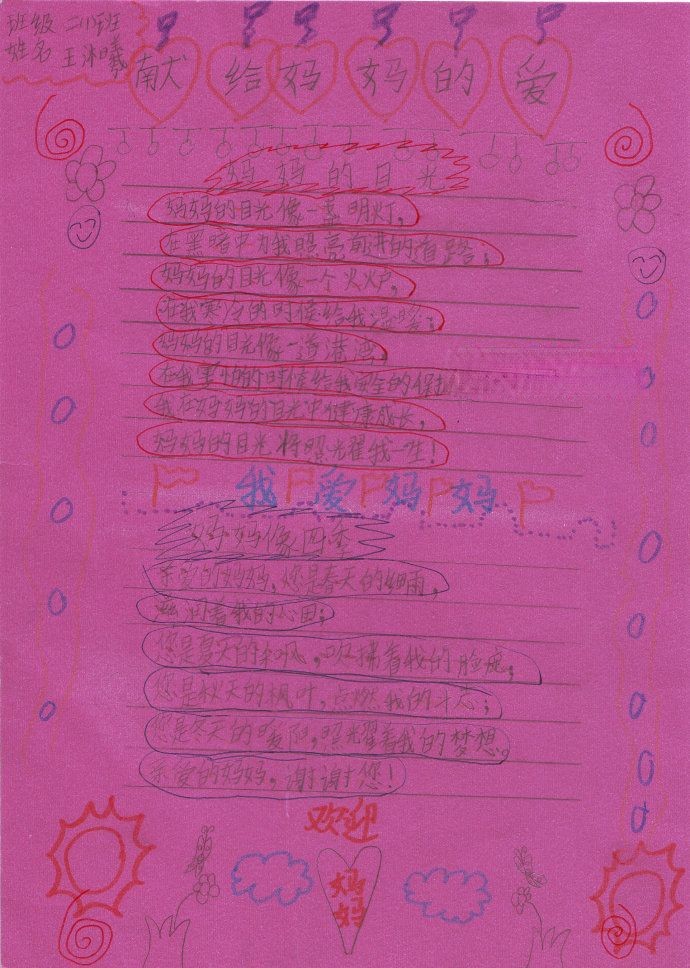 班级 二(1)班
姓名 王沐曦
献给妈妈的爱
妈妈的目光
妈妈的目光像一盏明灯,
在黑暗中为我照亮前进的道路;
妈妈的目光像一个火炉,
在我寒冷的时候给我温暖;
妈妈的目光像一道港湾,
在我害怕的时候给我安全的保护
我在妈妈的目光中健康成长,
妈妈的目光将照耀我一生!
我爱妈妈
妈妈像四季
亲爱的妈妈,您是春天的细雨,
滋润着我的心田;
您是夏天的凉风,吹拂着我的脸庞;
您是秋天的枫叶,点燃我的斗志;
您是冬天的暖阳,照耀着我的梦想。
亲爱的妈妈,谢谢您!
欢迎
妈妈